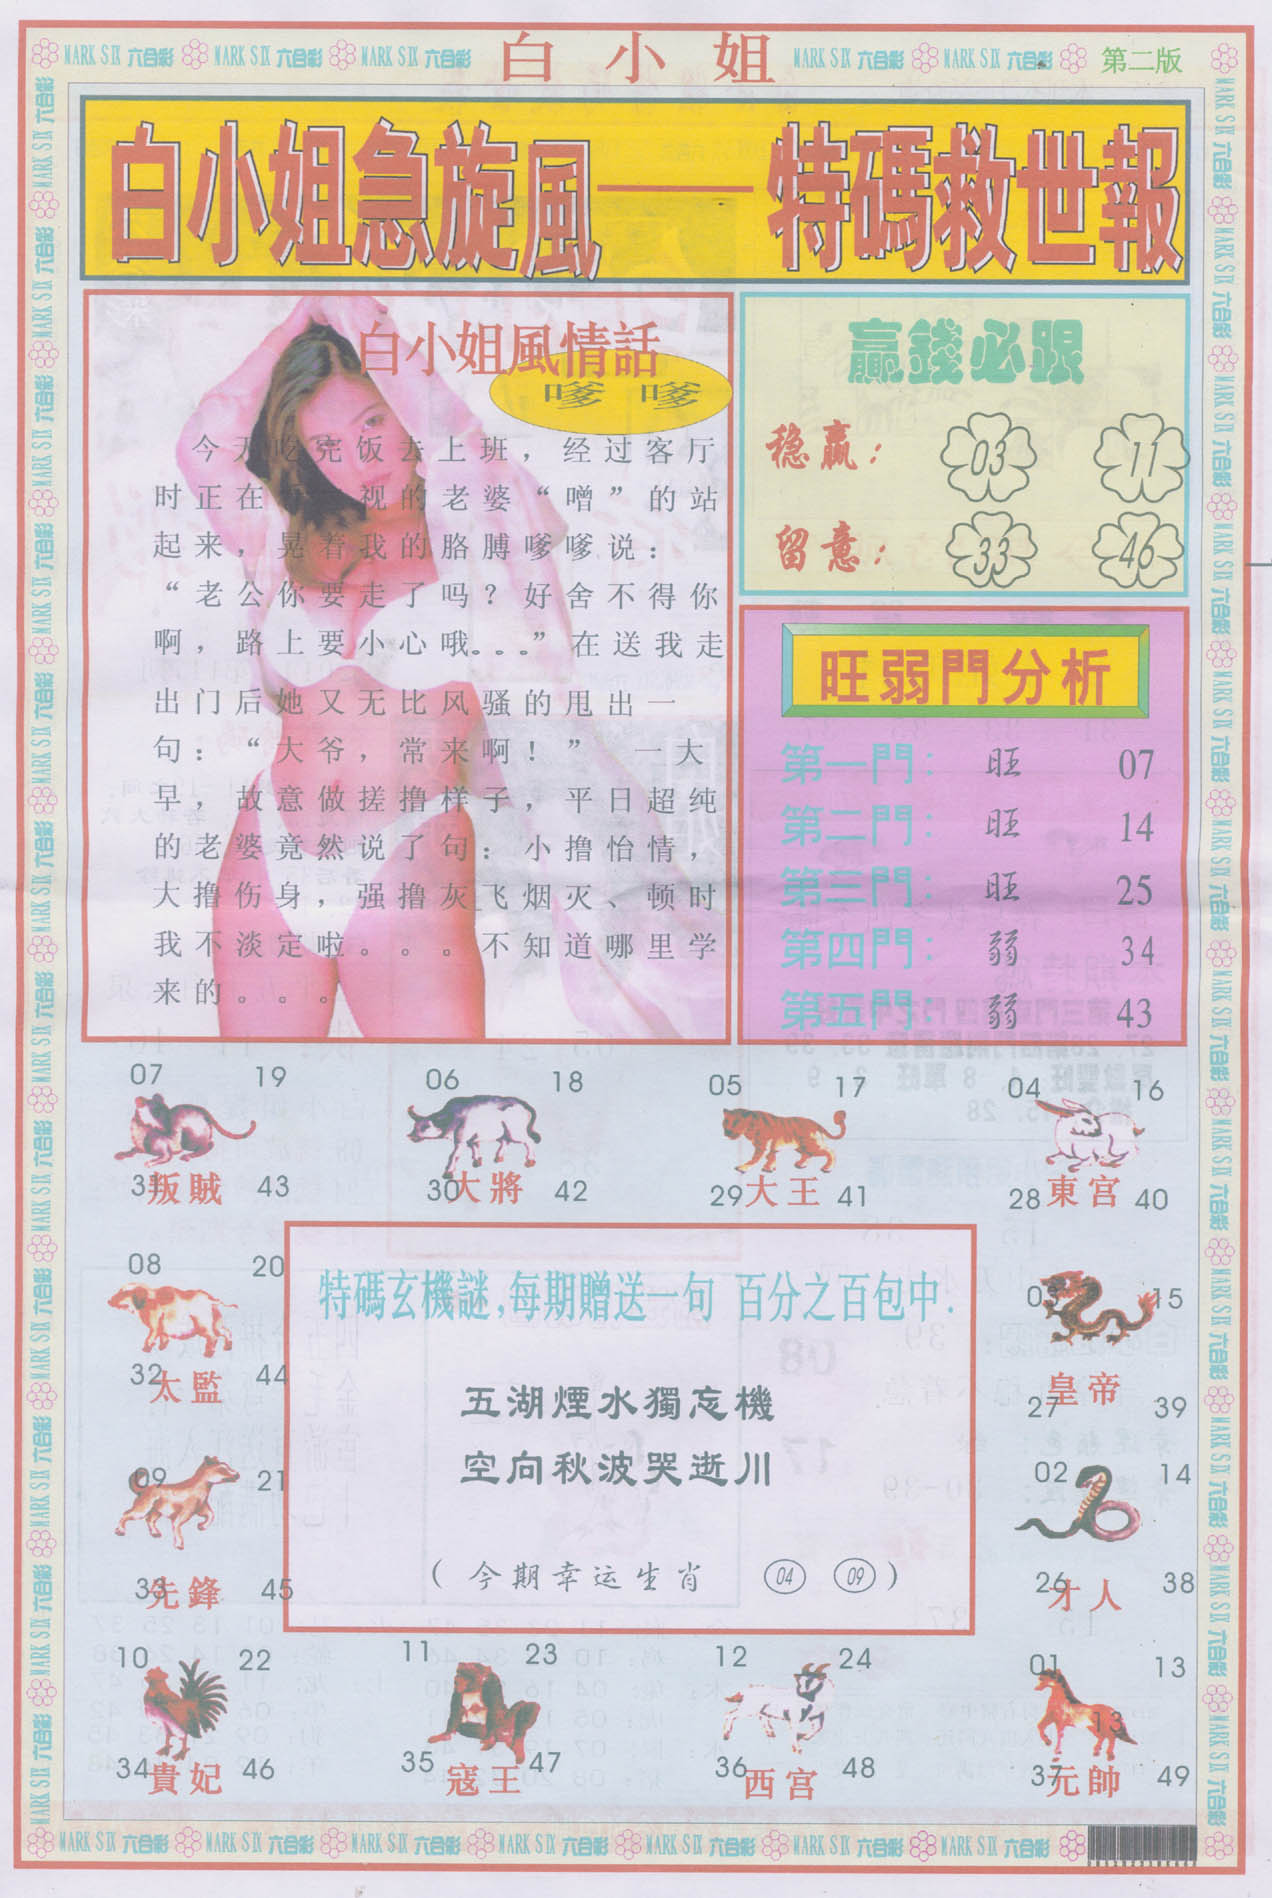 MARK SIX 六合彩 MARK SIX 六合彩 MARK SIX 六合彩 白小姐 MARK SIX 六合彩 MARK SIX 六合彩 第二版
白小姐急旋風——特碼救世報
白小姐風情話
嗲嗲
今天吃完饭去上班，经过客厅
时正在 视的老婆“噌”的站
起来，晃着我的胳膊嗲嗲说：
“老公你要走了吗？好舍不得你
啊，路上要小心哦。。。”在送我走
出门后她又无比风骚的甩出一
句：“大爷，常来啊！” 一大
早，故意做搓撸样子，平日超纯
的老婆竟然说了句：小撸怡情，
大撸伤身，强撸灰飞烟灭、顿时
我不淡定啦。。。不知道哪里学
来的。。。
贏錢必跟
稳赢： 03 11
留意： 33 46
旺弱門分析
第一門： 旺 07
第二門： 旺 14
第三門： 旺 25
第四門： 弱 34
第五門： 弱 43
07 19
31 叛賊 43
06 18
30 大將 42
05 17
29 大王 41
04 16
28 東宫 40
08 20
32 太監 44
03 15
27 皇帝 39
09 21
33 先鋒 45
02 14
26 才人 38
特碼玄機謎,每期贈送一句 百分之百包中.
五湖煙水獨忘機
空向秋波哭逝川
(今期幸运生肖 04 09)
10 22
34 貴妃 46
11 23
35 寇王 47
12 24
36 西宫 48
01 13
13
37 元帥 49
MARK SIX 六合彩 MARK SIX 六合彩 MARK SIX 六合彩 MARK SIX 六合彩 MARK SIX 六合彩 MARK SIX 六合彩 MARK SIX 六合彩